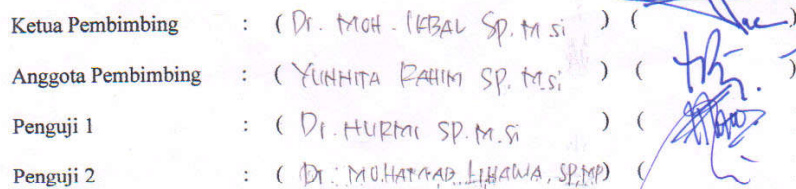 Ketua Pembimbing : (Dr. MOH. IKBAL SP. M.si ) ( )
Anggota Pembimbing : ( YUNNITA RAHIM SP. M.si ) ( )
Penguji 1 : ( Dr. HURMI SP. M.Si ) ( )
Penguji 2 : ( Dr. MUHAMMAD LIHAWA, SP.MP) (